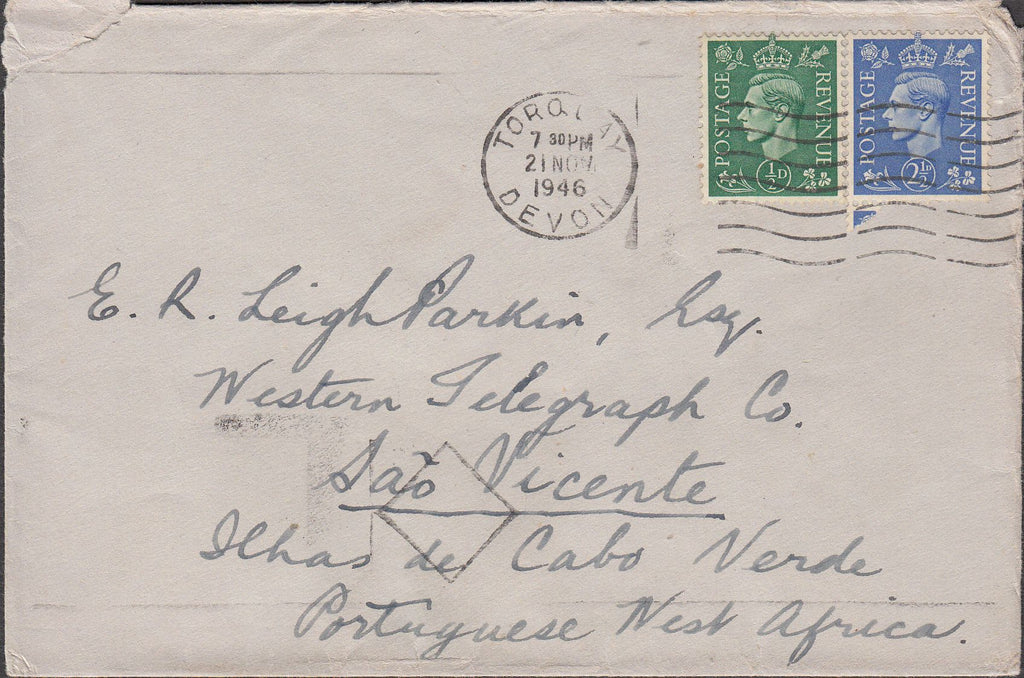 POSTAGE REVENUE
½D
POSTAGE REVENUE
2½D
TORQUAY
7 30PM
21 NOV
1946
DEVON
E. R. Leigh Parkin, Esq.
Western Telegraph Co.
São Vicente
Ilhas de Cabo Verde
Portuguese West Africa.
T